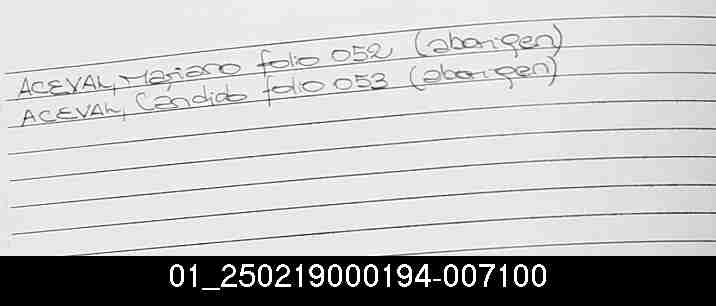 ACEVAL, Mariano folio 052 (aborigen)
ACEVAL, Candido folio 053 (aborigen)
01_250219000194-007100